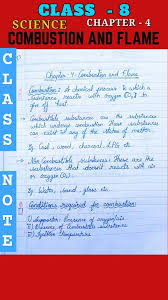 CLASS - 8
SCIENCE CHAPTER - 4
COMBUSTION AND FLAME
CLASS NOTE
Chapter 4 Combustion and Flame
Combustion: A chemical process in which a
substance reacts with oxygen (O₂) to
give off heat
Combustible substances are the substances
which undergo combustion. These substances
can exist in any of the states of matter.
Non Combustible substances: These are the
substances that doesn't reacts with air
or oxygen (O₂).
Eg. Water, sand, glass etc.
Conditions required for combustion:
Presence of Combustible substances
Ignition Temperature